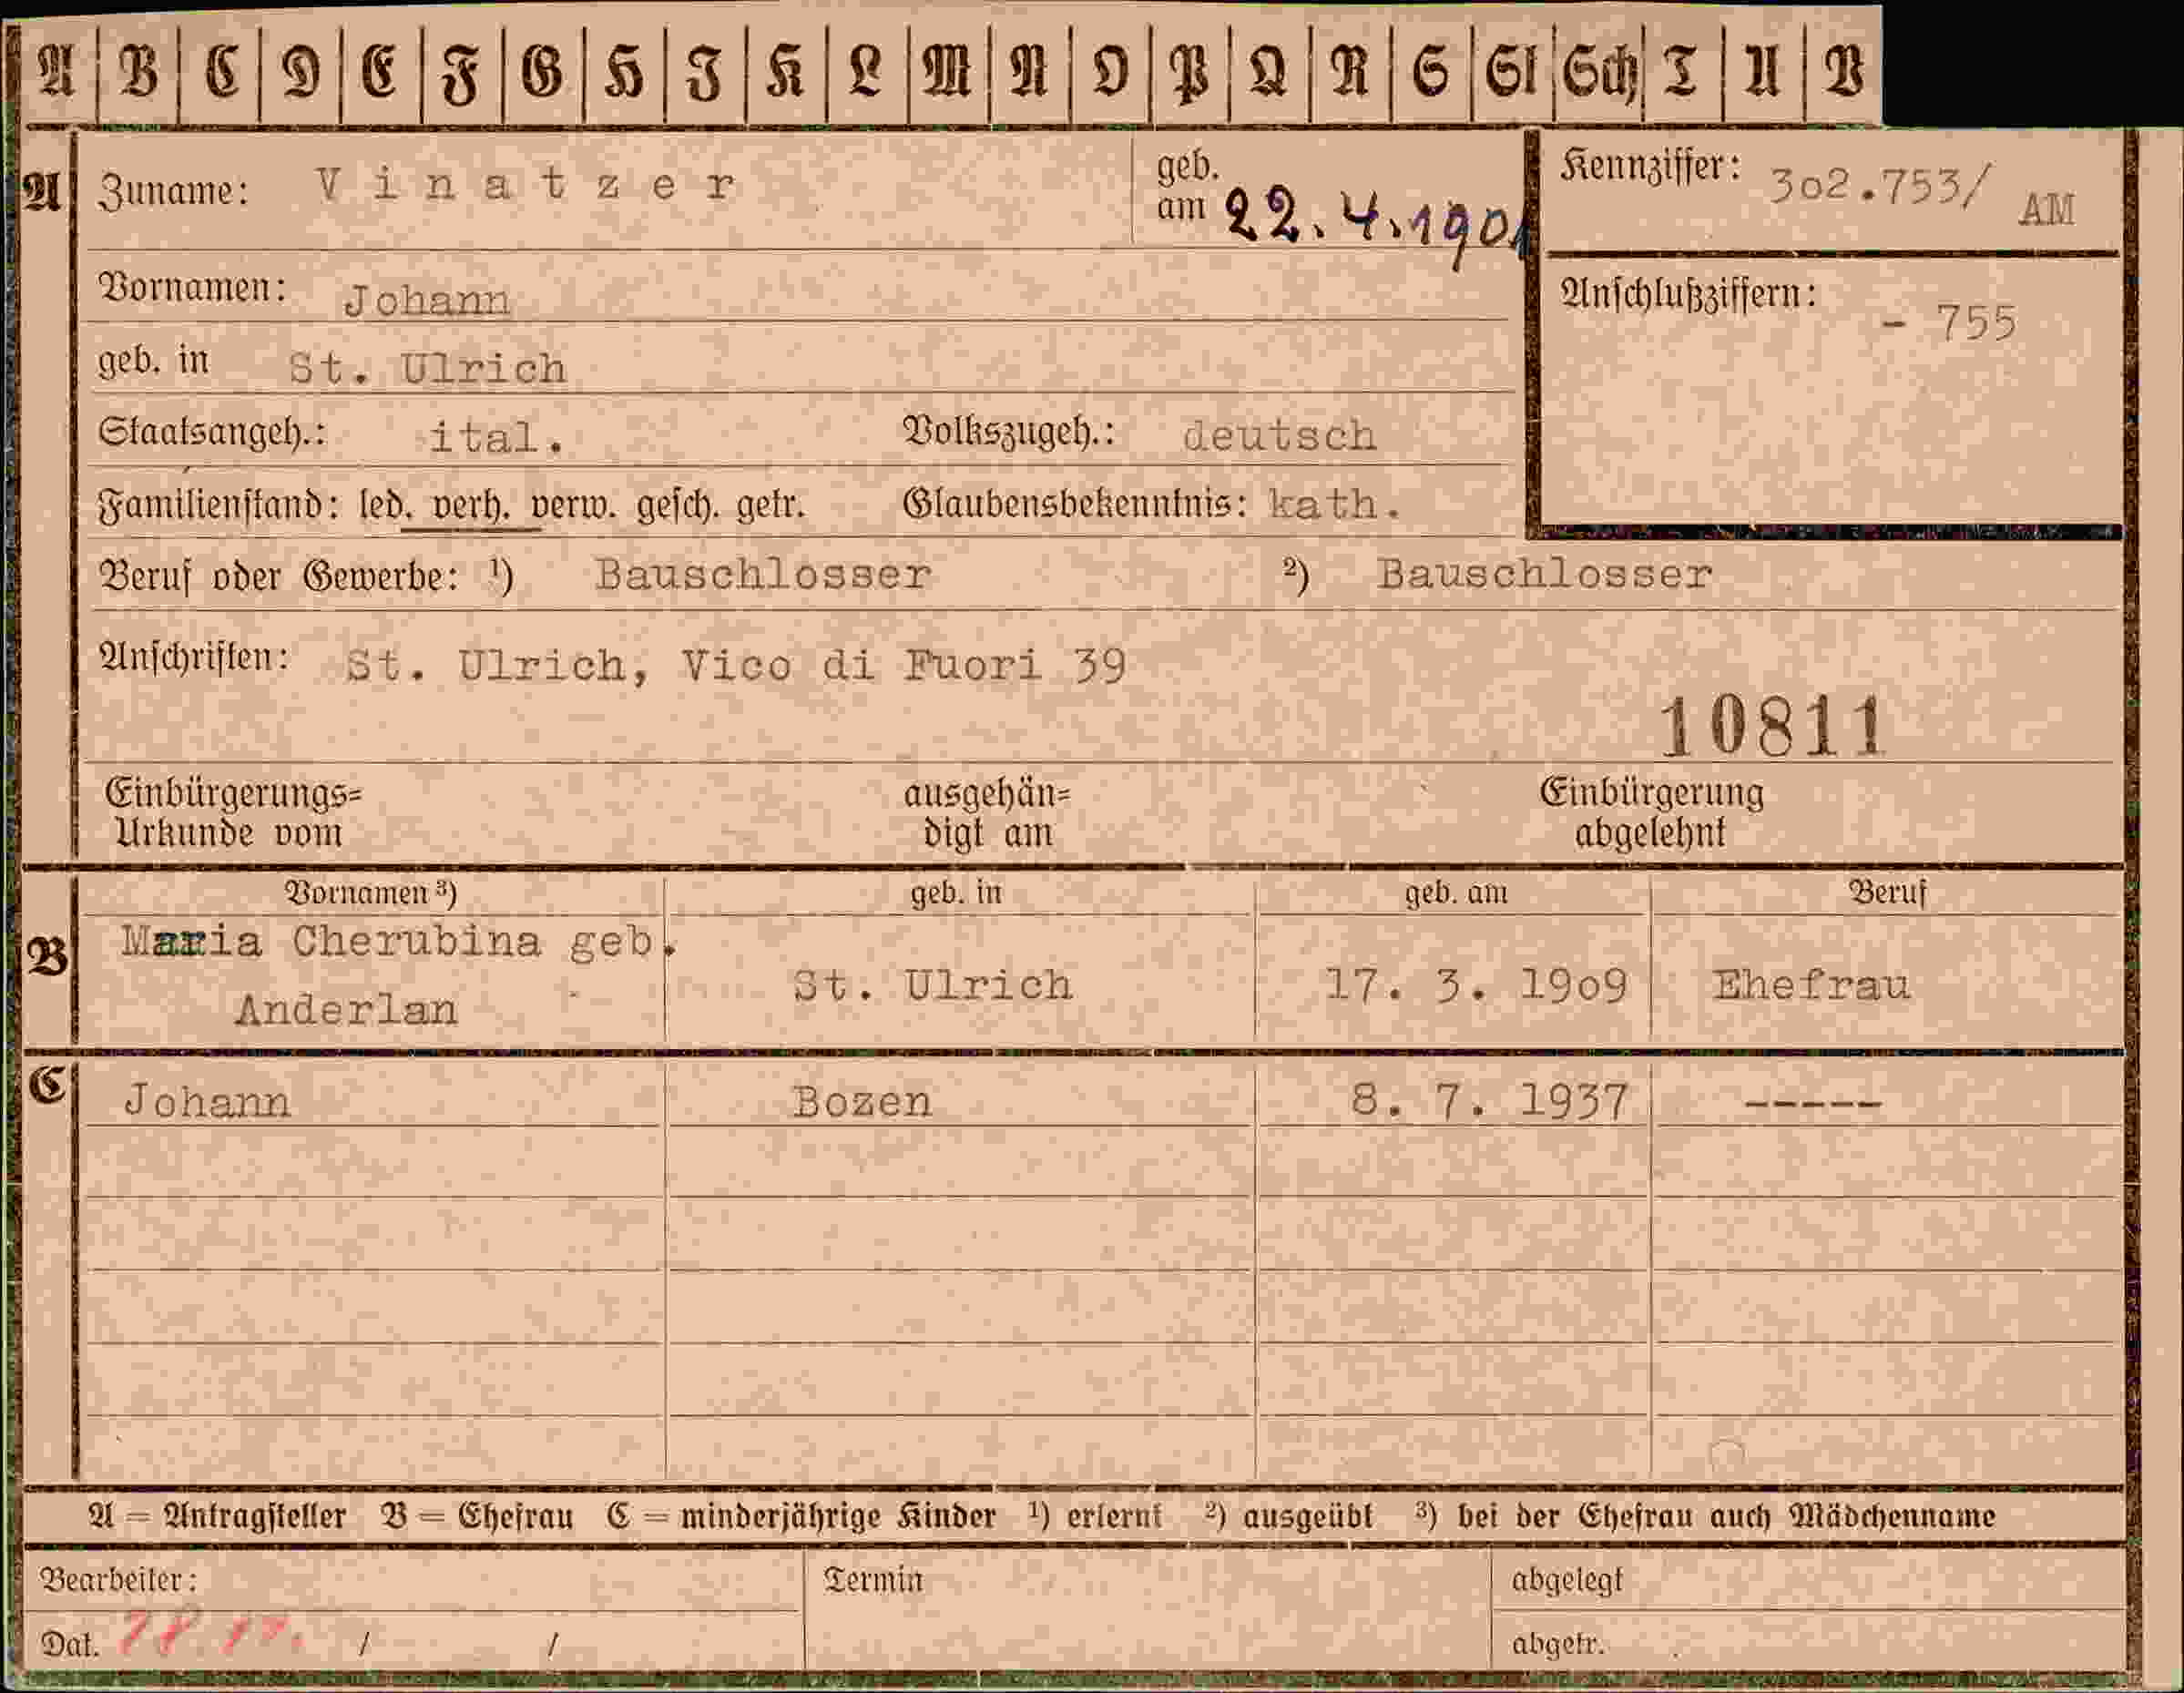 A B C D E F G H I K L M N O P Q R S St Sch T U V
A Zuname: Vinatzer geb. am 22.4.1901 Kennziffer: 302.753/ AM
Vornamen: Johann Anschlußziffern: - 755
geb. in St. Ulrich
Staatsangeh.: ital. Volkszugeh.: deutsch
Familienstand: led. verh. verw. gesch. getr. Glaubensbekenntnis: kath.
Beruf oder Gewerbe: ¹) Bauschlosser ²) Bauschlosser
Anschriften: St. Ulrich, Vico di Fuori 39
10811
Einbürgerungs= ausgehän= Einbürgerung
Urkunde vom digt am abgelehnt
Vornamen ³) geb. in geb. am Beruf
B Maria Cherubina geb.
Anderlan St. Ulrich 17. 3. 1909 Ehefrau
C Johann Bozen 8. 7. 1937 -----
A = Antragsteller B = Ehefrau C = minderjährige Kinder ¹) erlernt ²) ausgeübt ³) bei der Ehefrau auch Mädchenname
Bearbeiter: Termin abgelegt
Dat. / / abgetr.